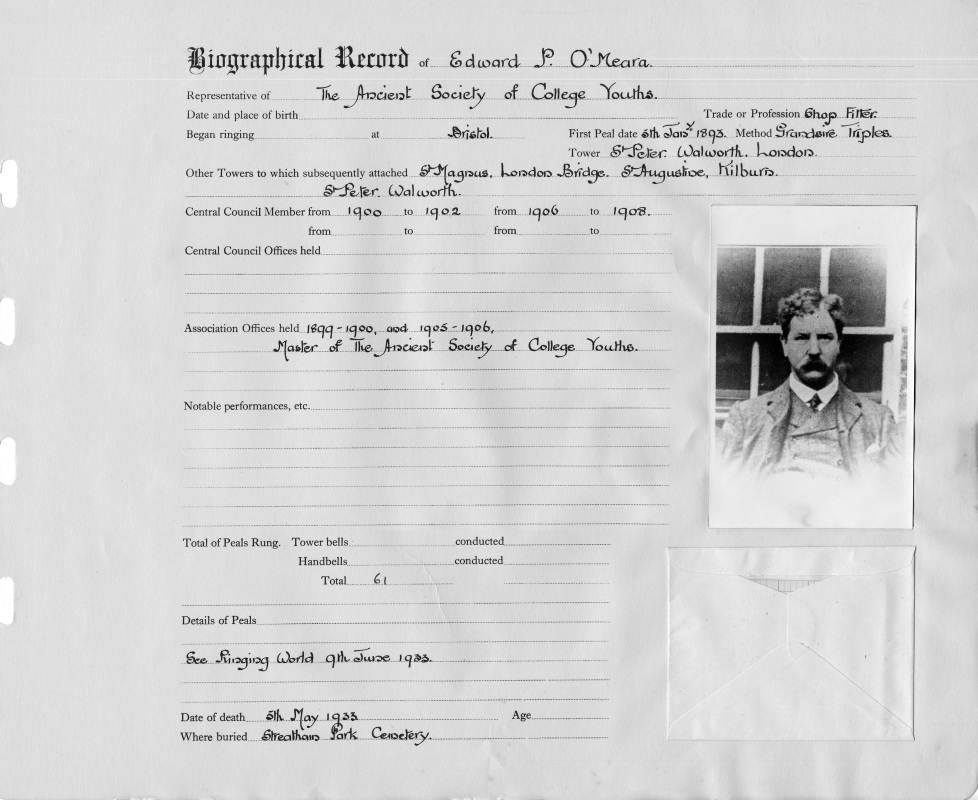 Biographical Record of Edward P. O'Meara.
Representative of The Ancient Society of College Youths.
Date and place of birth Trade or Profession Shop Fitter.
Began ringing at Bristol. First Peal date 5th Jany 1893. Method Grandsire Triples.
Tower St Peter. Walworth. London.
Other Towers to which subsequently attached St Magnus, London Bridge. St Augustine, Kilburn.
St Peter. Walworth.
Central Council Member from 1900 to 1902 from 1906 to 1908.
from to from to
Central Council Offices held
Association Offices held 1899-1900, and 1905-1906,
Master of The Ancient Society of College Youths.
Notable performances, etc.
Total of Peals Rung. Tower bells conducted
Handbells conducted
Total 61
Details of Peals
See Ringing World 9th June 1933.
Date of death 5th May 1933 Age
Where buried Streatham Park Cemetery.